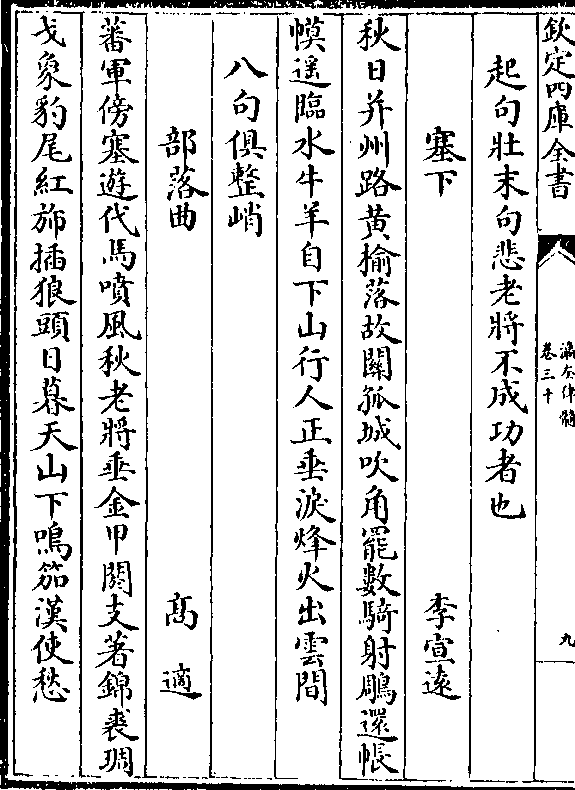 欽定四庫全書
瀛奎律髓
卷三十
九
起句壯末句悲老將不成功者也
塞下　李宣遠
秋日并州路黄榆落故關孤城吹角罷數騎射鵰還帳
幙遥臨水牛羊自下山行人正垂淚烽火出雲間
八句俱整峭
部落曲　髙適
蕃軍傍塞遊代馬噴風秋老將垂金甲閼支著錦裘琱
戈𧰼豹尾紅斾插狼頭日暮天山下鳴笳漢使愁